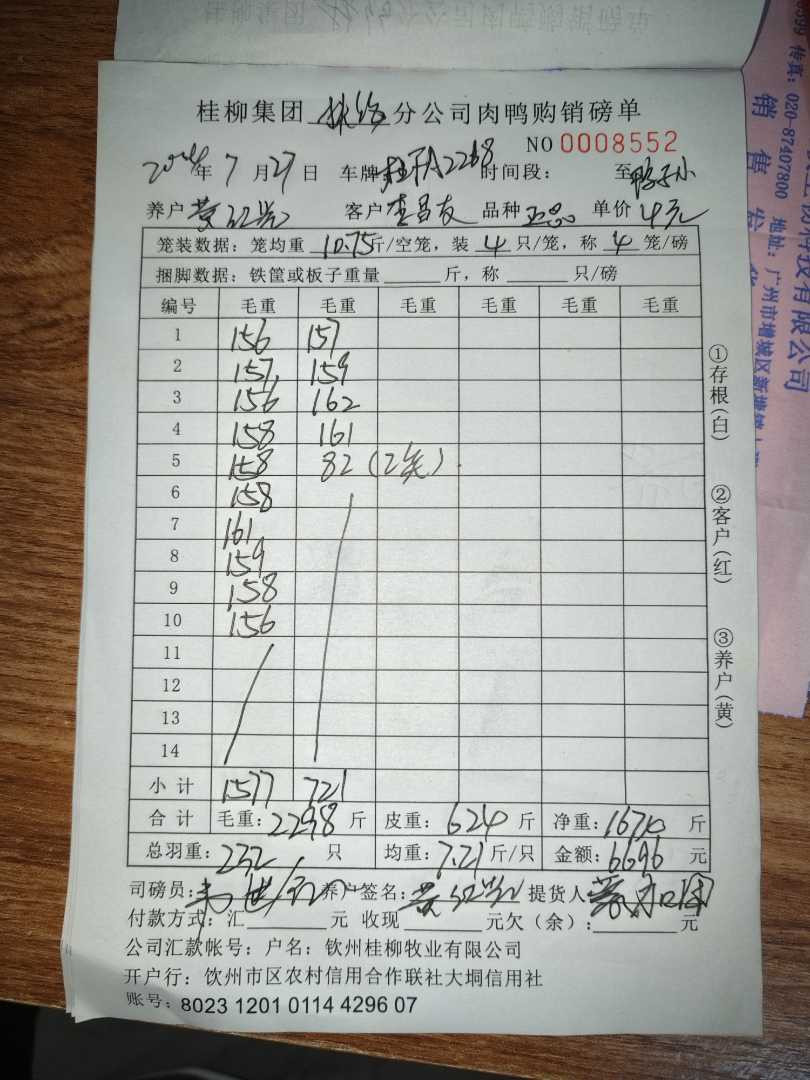 桂柳集团 分公司肉鸭购销磅单
NO 0008552
2024年 7月27日 车牌 2268 时间段: 至
养户 客户 李昌友 品种 正品 单价 4元
笼装数据: 笼均重 10.75斤/空笼, 装 4 只/笼, 称 4 笼/磅
捆脚数据: 铁筐或板子重量 斤, 称 只/磅
编号 毛重 毛重 毛重 毛重 毛重 毛重
1 156 157
2 157 159
3 156 162
4 158 161
5 158 82 (2笼)
6 158
7 161
8 159
9 158
10 156
11
12
13
14
小计 1577 721
合计 毛重: 2298 斤 皮重: 624 斤 净重: 1674 斤
总羽重: 232 只 均重: 7.21斤/只 金额: 6696 元
司磅员: 养户签名: 提货人
付款方式: 汇 元 收现 元欠(余): 元
公司汇款帐号: 户名: 钦州桂柳牧业有限公司
开户行: 钦州市区农村信用合作联社大垌信用社
账号: 8023 1201 0114 4296 07
①存根(白) ②客户(红) ③养户(黄)
传真: 020-87407800 地址: 广州市增城区新塘镇
科技有限公司
销售发